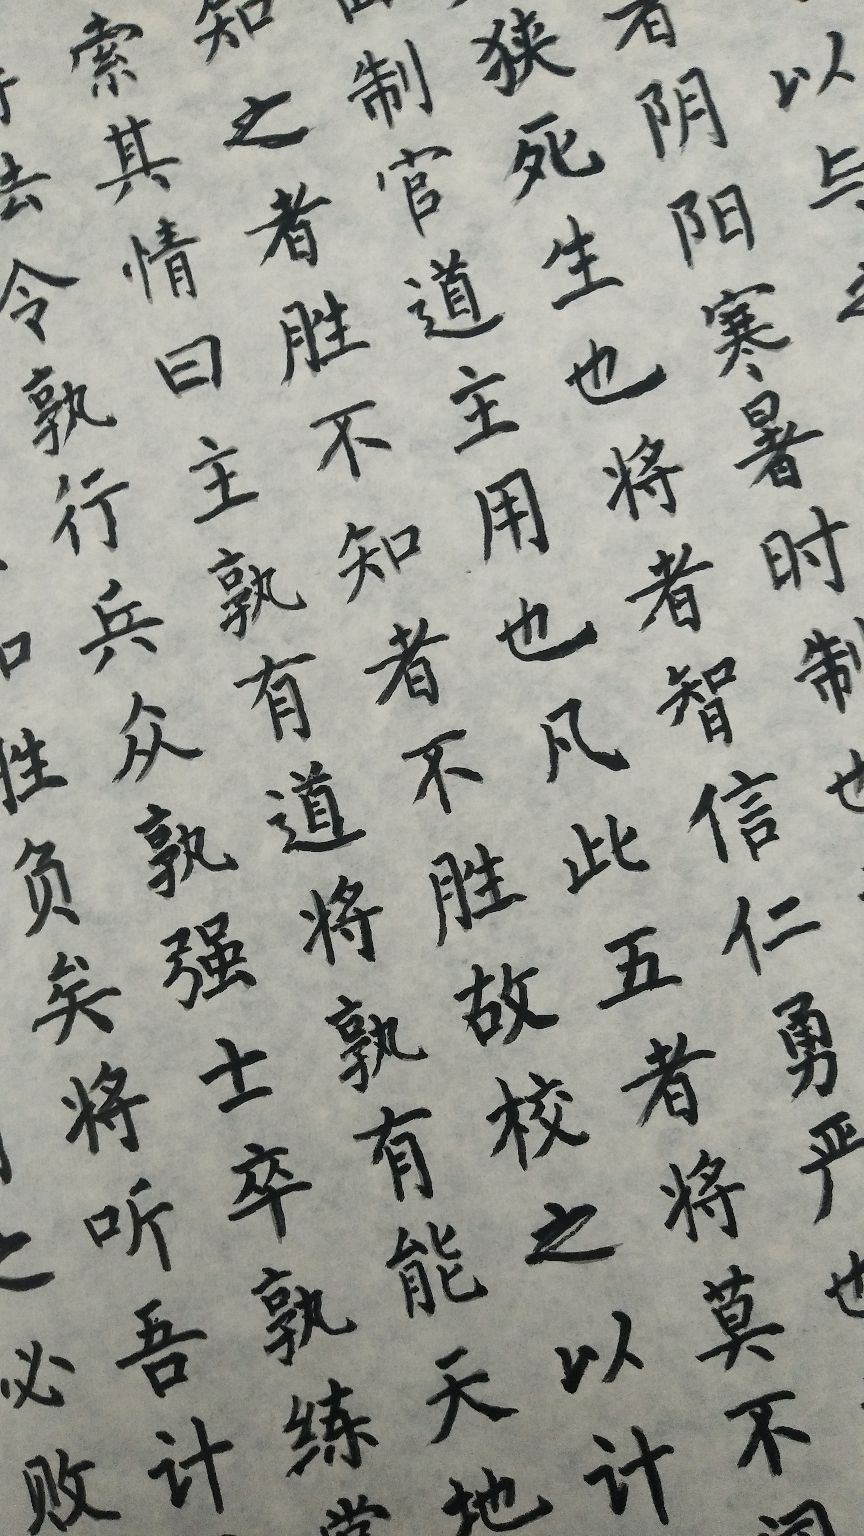 以与
者阴阳寒暑时制也
狭死生也将者智信仁勇严也
制官道主用也凡此五者将莫不
知之者胜不知者不胜故校之以计
索其情曰主孰有道将孰有能天地
法令孰行兵众孰强士卒孰练赏
胜负矣将听吾计
之必败